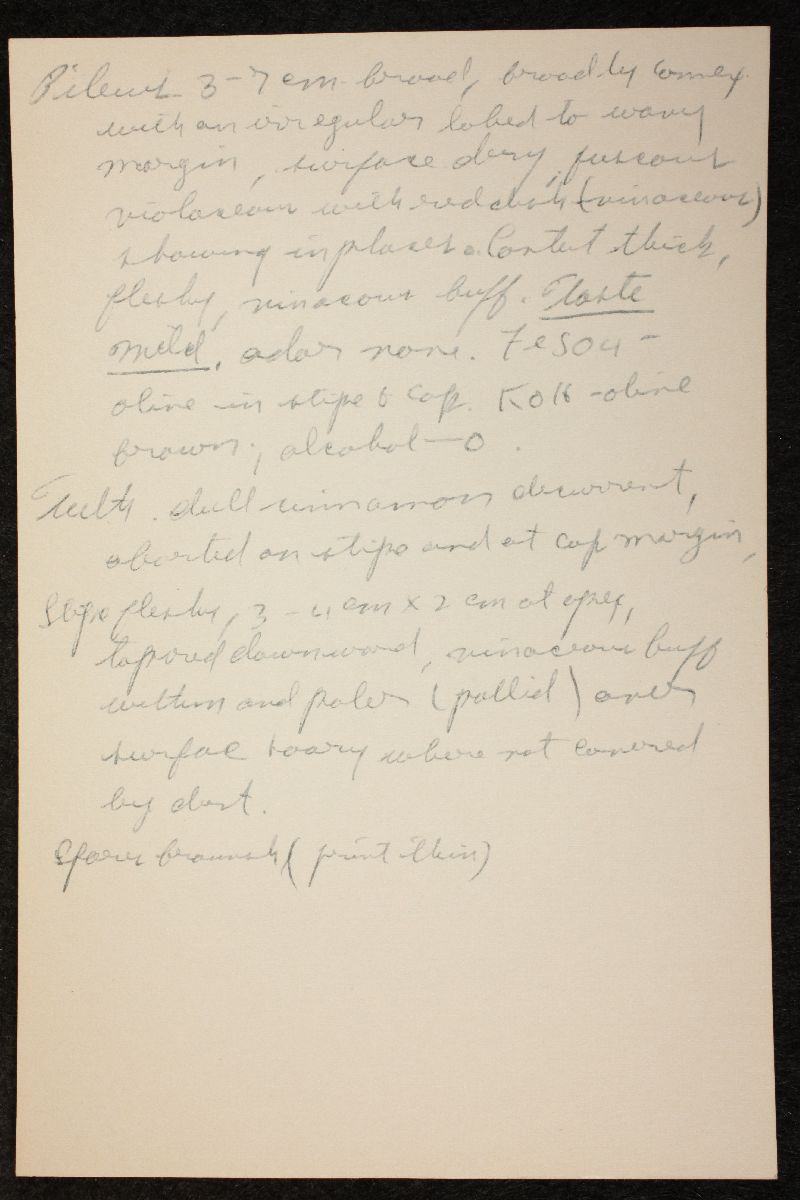 Pileus 3-7 cm broad, broadly convex
with an irregular lobed to wavy
margin, surface dry, fuscous
violaceous with reddish (vinaceous)
showing in places. Context thick,
fleshy, vinaceous buff. Taste
mild, odor none. FeSO4 -
olive in stipe & cap. KOH - olive
brown; alcohol - 0.
Teeth dull cinnamon decurrent,
aborted on stipe and at cap margin,
Stipe fleshy, 3-4 cm x 2 cm at apex,
tapered downward, vinaceous buff
within and paler (pallid) over
surface hoary where not covered
by dirt.
Spores brownish (print thin)